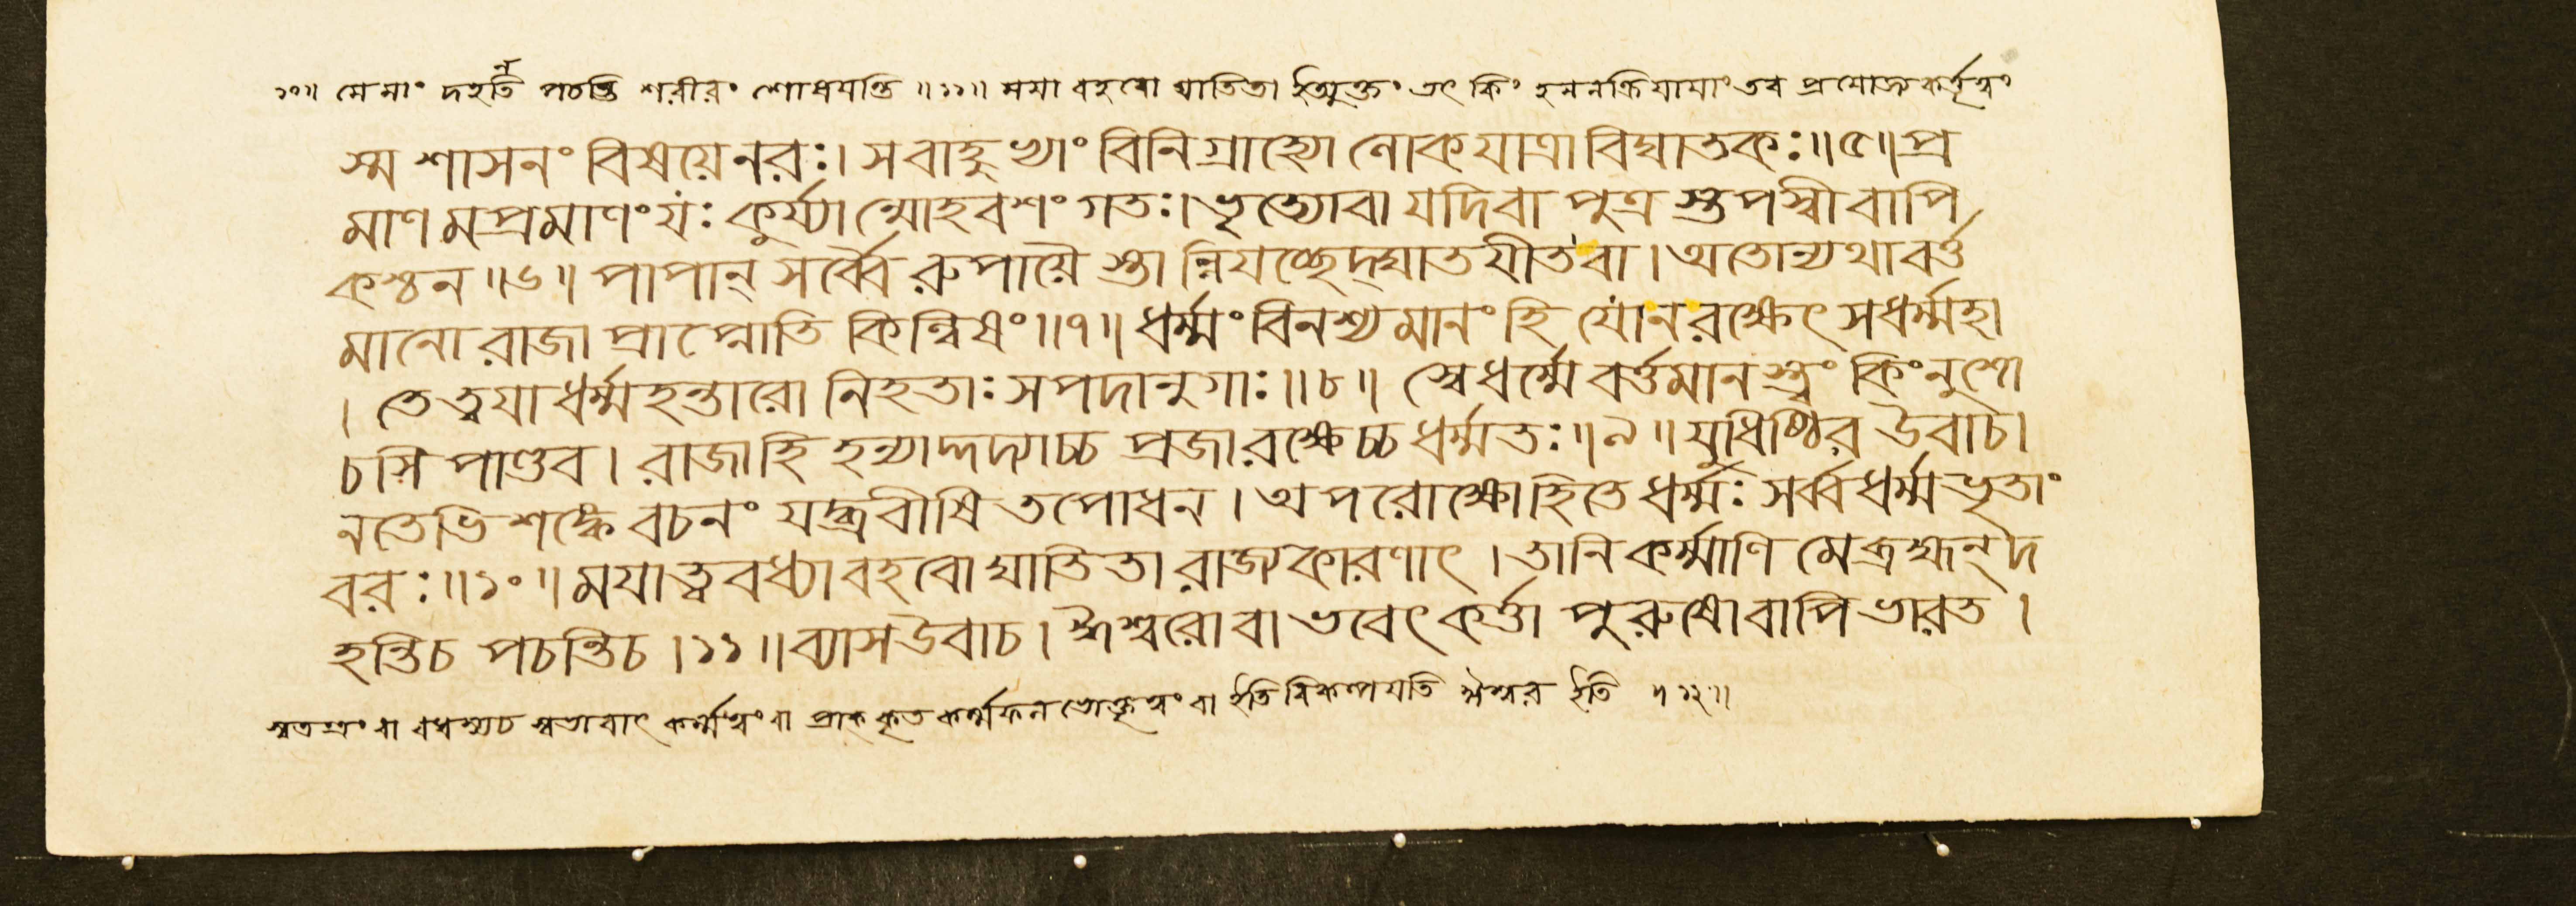 ১০॥ মে মাং দহন্তি পচন্তি শরীরং শোষযন্তি ॥১১॥ ময়া বহবো ঘাতিতা ইত্যুক্তং তৎ কিং হননক্রিযাযাং তব প্রযোজ্যকর্ত্তৃত্বং
স্ম শাসনং বিষয়ে নরঃ। স বাহুভ্যাং বিনিগ্রাহ্যো লোকযাত্রা বিঘাতকঃ॥৫॥ প্র
মাণমপ্রমাণং যঃ কুর্য্যান্মোহবশং গতঃ। ভৃত্যো বা যদি বা পুত্রস্তপস্বী বাপি
কশ্চন॥৬॥ পাপান্ সর্ব্বৈরুপায়ৈস্তান্নিযচ্ছেদ্ঘাতযীত বা। অতোন্যথা বর্ত্ত
মানো রাজা প্রাপ্নোতি কিল্বিষং॥৭॥ ধর্ম্মং বিনশ্যমানং হি যো ন রক্ষেৎ স ধর্ম্মহা
। তে ত্বযা ধর্ম্মহন্তারো নিহতাঃ সপদানুগাঃ॥৮॥ স্বে ধর্ম্মে বর্ত্তমানস্ত্বং কিং নু শো
চসি পাণ্ডব। রাজা হি হন্যাদ্দদ্যাচ্চ প্রজা রক্ষেচ্চ ধর্ম্মতঃ॥৯॥ যুধিষ্ঠির উবাচ।
ন তেভিশঙ্কে বচনং যদ্ব্রবীষি তপোধন। অপরোক্ষো হি তে ধর্ম্মঃ সর্ব্বধর্ম্মভৃতাং
বরঃ॥১০॥ মযা ত্ববধ্যা বহবো ঘাতিতা রাজ্যকারণাৎ। তানি কর্ম্মাণি মে ব্রহ্মন্ দ
হন্তি চ পচন্তি চ।১১॥ ব্যাস উবাচ। ঈশ্বরো বা ভবেৎ কর্ত্তা পুরুষো বাপি ভারত।
স্বতন্ত্রং বা বধস্যচ স্বভাবাৎ কর্ম্মত্বং বা প্রাক্ কৃত কর্ম্মফলভোক্তৃত্বং বা ইতি বিকল্পযতি ঈশ্বর ইতি ॥১২॥